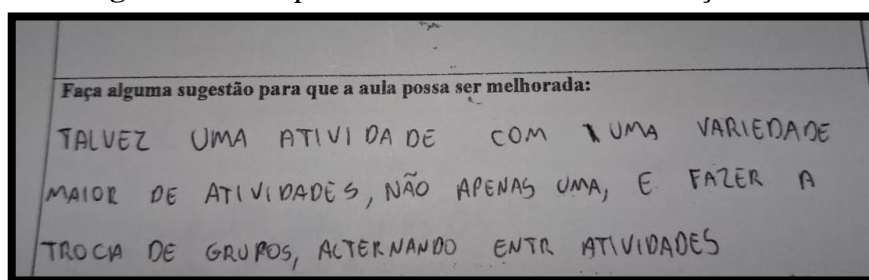 Faça alguma sugestão para que a aula possa ser melhorada:
TALVEZ UMA ATIVIDADE COM UMA VARIEDADE
MAIOR DE ATIVIDADES, NÃO APENAS UMA, E FAZER A
TROCA DE GRUPOS, ALTERNANDO ENTR ATIVIDADES